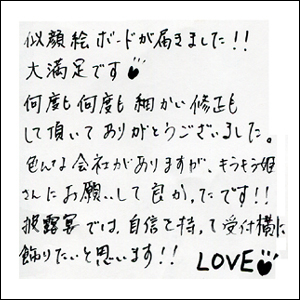 似顔絵ボードが届きました!!
大満足です
何度も何度も細かい修正も
して頂いてありがとうございました。
色んな会社がありますが、キラキラ姫
さんにお願いして良かったです!!
披露宴では、自信を持って受付横に
飾りたいと思います!!
LOVE